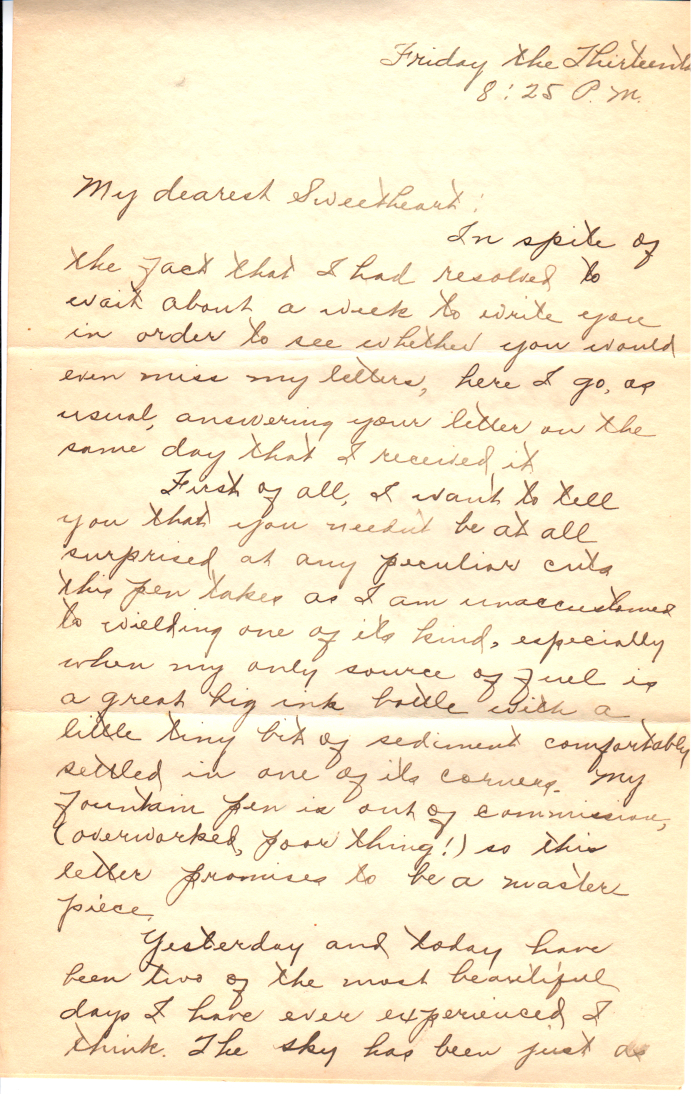 Friday the Thirteenth
8:25 P.M.
My dearest Sweetheart:
In spite of
the fact that I had resolved to
wait about a week to write you
in order to see whether you would
even miss my letters, here I go, as
usual, answering your letter on the
same day that I received it
First of all, I want to tell
you that you needn't be at all
surprised at any peculiar cuts
this pen takes as I am unaccustomed
to wielding one of its kind, especially
when my only source of fuel is
a great big ink bottle with a
little tiny bit of sediment comfortably
settled in one of its corners. My
fountain pen is out of commission,
(overworked, poor thing!) so this
letter promises to be a master
piece.
Yesterday and today have
been two of the most beautiful
days I have ever experienced I
think. The sky has been just as